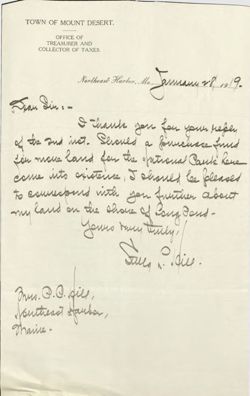 TOWN OF MOUNT DESERT.
OFFICE OF
TREASURER AND
COLLECTOR OF TAXES.
Northeast Harbor, Me., January 28, 1919.
Dear Sir:-
I thank you for your reply
of the 2nd inst. Should a purchase fund
for more land for the National Park here
come into existence, I should be pleased
to correspond with you further about
my land on the shore of Long Pond.
Yours very truly,
Hill.
Mrs. P. P. Hill,
Northeast Harbor,
Maine.